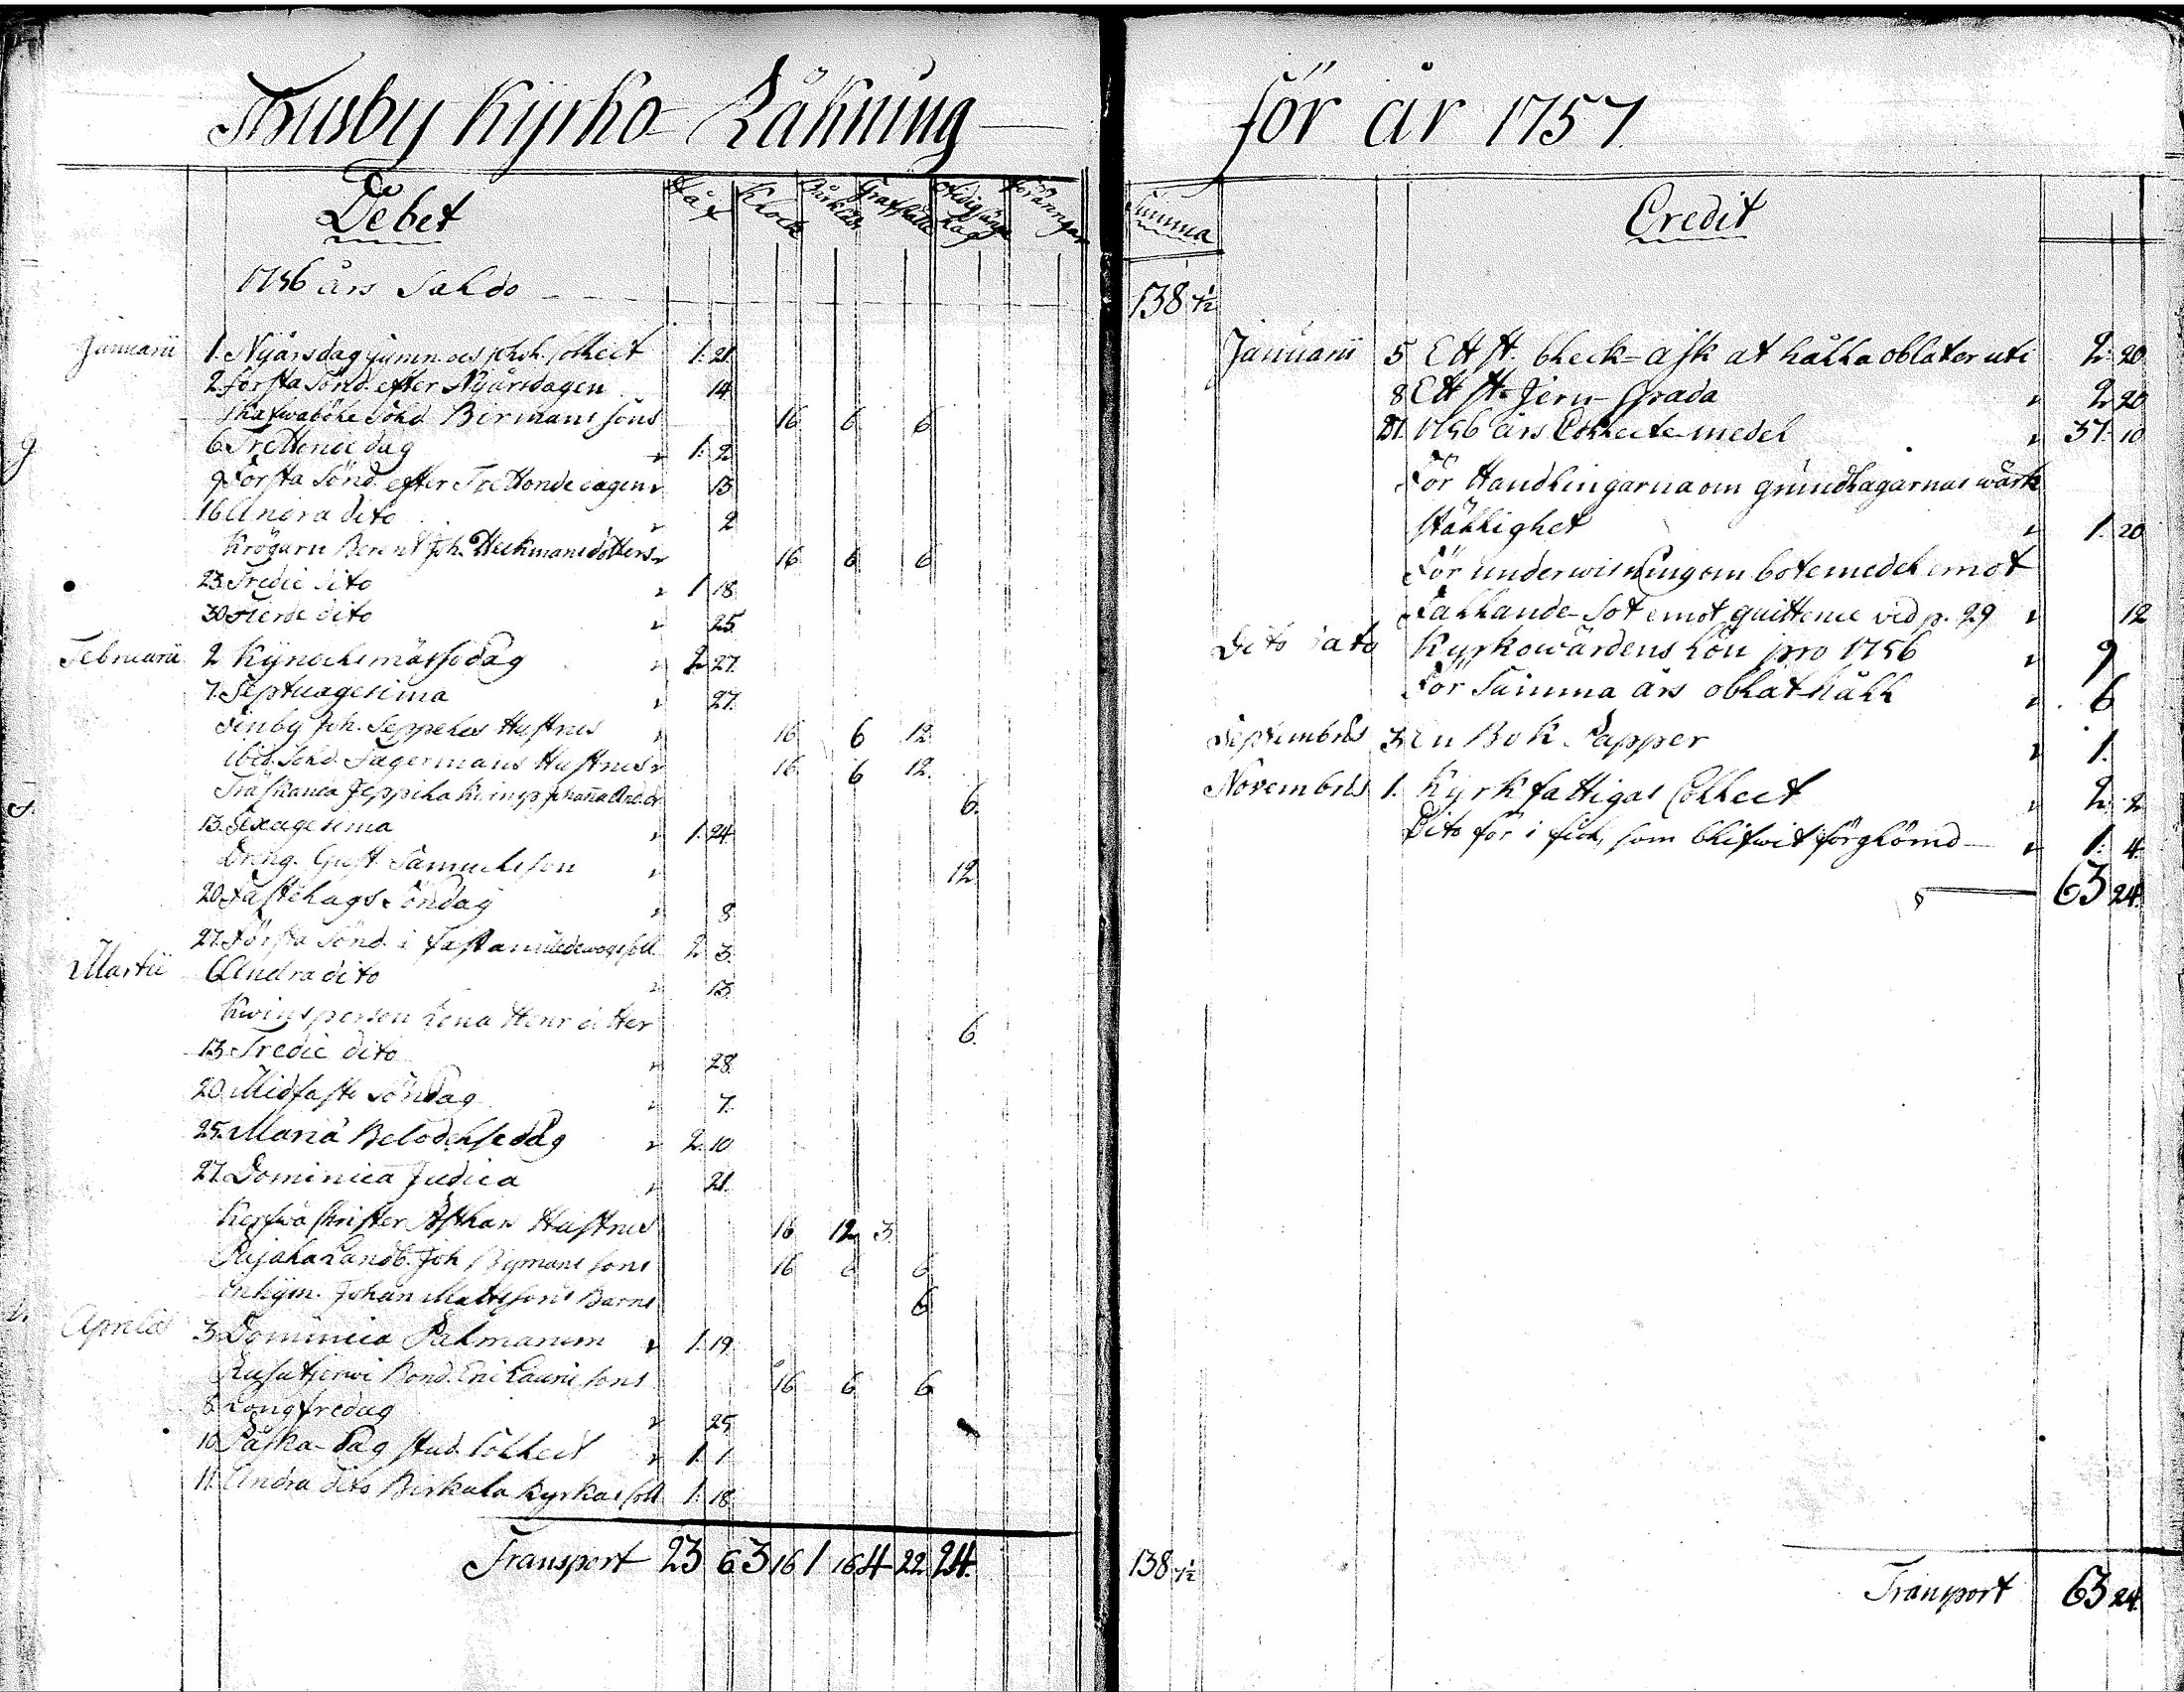 Thusby Kyrko-Räkning
Debet
Håf Klock Grafställe
1756 års Saldo
Januarii 1. Nyårsdag Collect 1. 21.
2. första Sönd. efter Nyårsdagen 14.
Birmans sons 16 6 6
6. Trettonde dag 1. 2.
9. Första Sönd. efter Trettonde dagen 13
16. Andra dito 2
Krögarn Berent Joh. Heckmans dotters 16 6 6
23. Tredie dito 1 18
30. Fierde dito 25
Februarii 2 Kyndelsmässodag 2 27.
7. Septuagesima 27.
Joh. Seppeles Hustrus 16 6 12
Ibid. Sold. Fagermans Hustrus 16 6 12.
6.
13. Sexagesima 1. 24.
Dräng. Gust. Samuelsson 12
20. Fastelags Söndag 8.
27. Första Sönd. i Fastan 2. 3.
Martii 6. Andra dito 13.
Kvinsperson Lena Henr dotter 6.
13. Tredie dito 28.
20. Midfasto Söndag 7.
25. Mariä Bebodelsedag 2. 10
27. Dominica Judica 21.
Christer Hustrus 16 12 3
Landb. Joh. Bymans sons 16 6 6
Inhym. Johan Mattssons Barns 6
Aprilis 3. Dominica Palmarum 1. 19.
Rusutjerwi Bond. Eric Lauris sons 16 6 6
8. Longfredag 25
10. Påska-Dag stud. Collect 1. 1
11. Andra dito Birkala Kyrkas Coll 1. 18
Transport 23 6 3 16 1 16 4 22 24.
för år 1757.
Summa
Credit
138 ½
Januarii 5 Ett st. bleck-ask at hålla oblater uti 2. 20
8 Ett st. Jern-Spada 2. 20
21. 1756 års Collecte-medel 37. 10
För Handlingarna om grundlagarnas wärk
ställighet 1. 20
För underwisning om botemedel emot
Fallande-Sot emot quittence vid p. 29 12
Dito dato Kyrkowärdens Lön pro 1756 9
För Samma års oblat-håll 6
Septembris 3. En Bok Papper 1.
Novembris 1. Kyrk fattigas Collect 2. 2
Dito för i fiol, som blifwit förglömd 1. 4.
63 24.
138 ½
Transport 63 24.